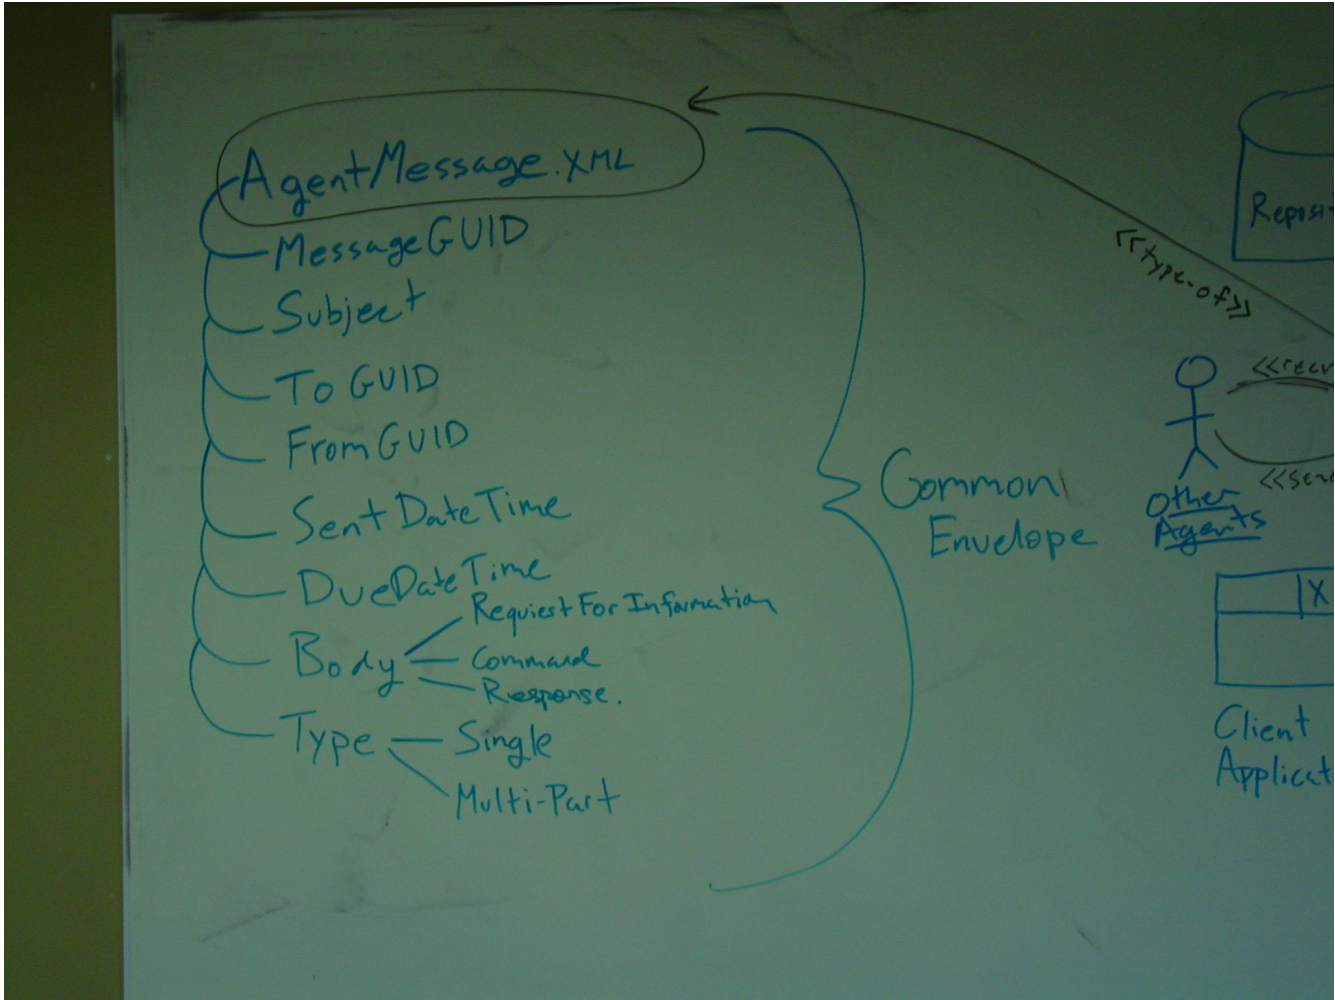 AgentMessage.XML
MessageGUID
Subject
To GUID
From GUID
Sent DateTime
DueDateTime
Body
Requiest For Information
Command
Response.
Type
Single
Multi-Part
Common
Envelope
<<type-of>>
Other
Agents
X
Client